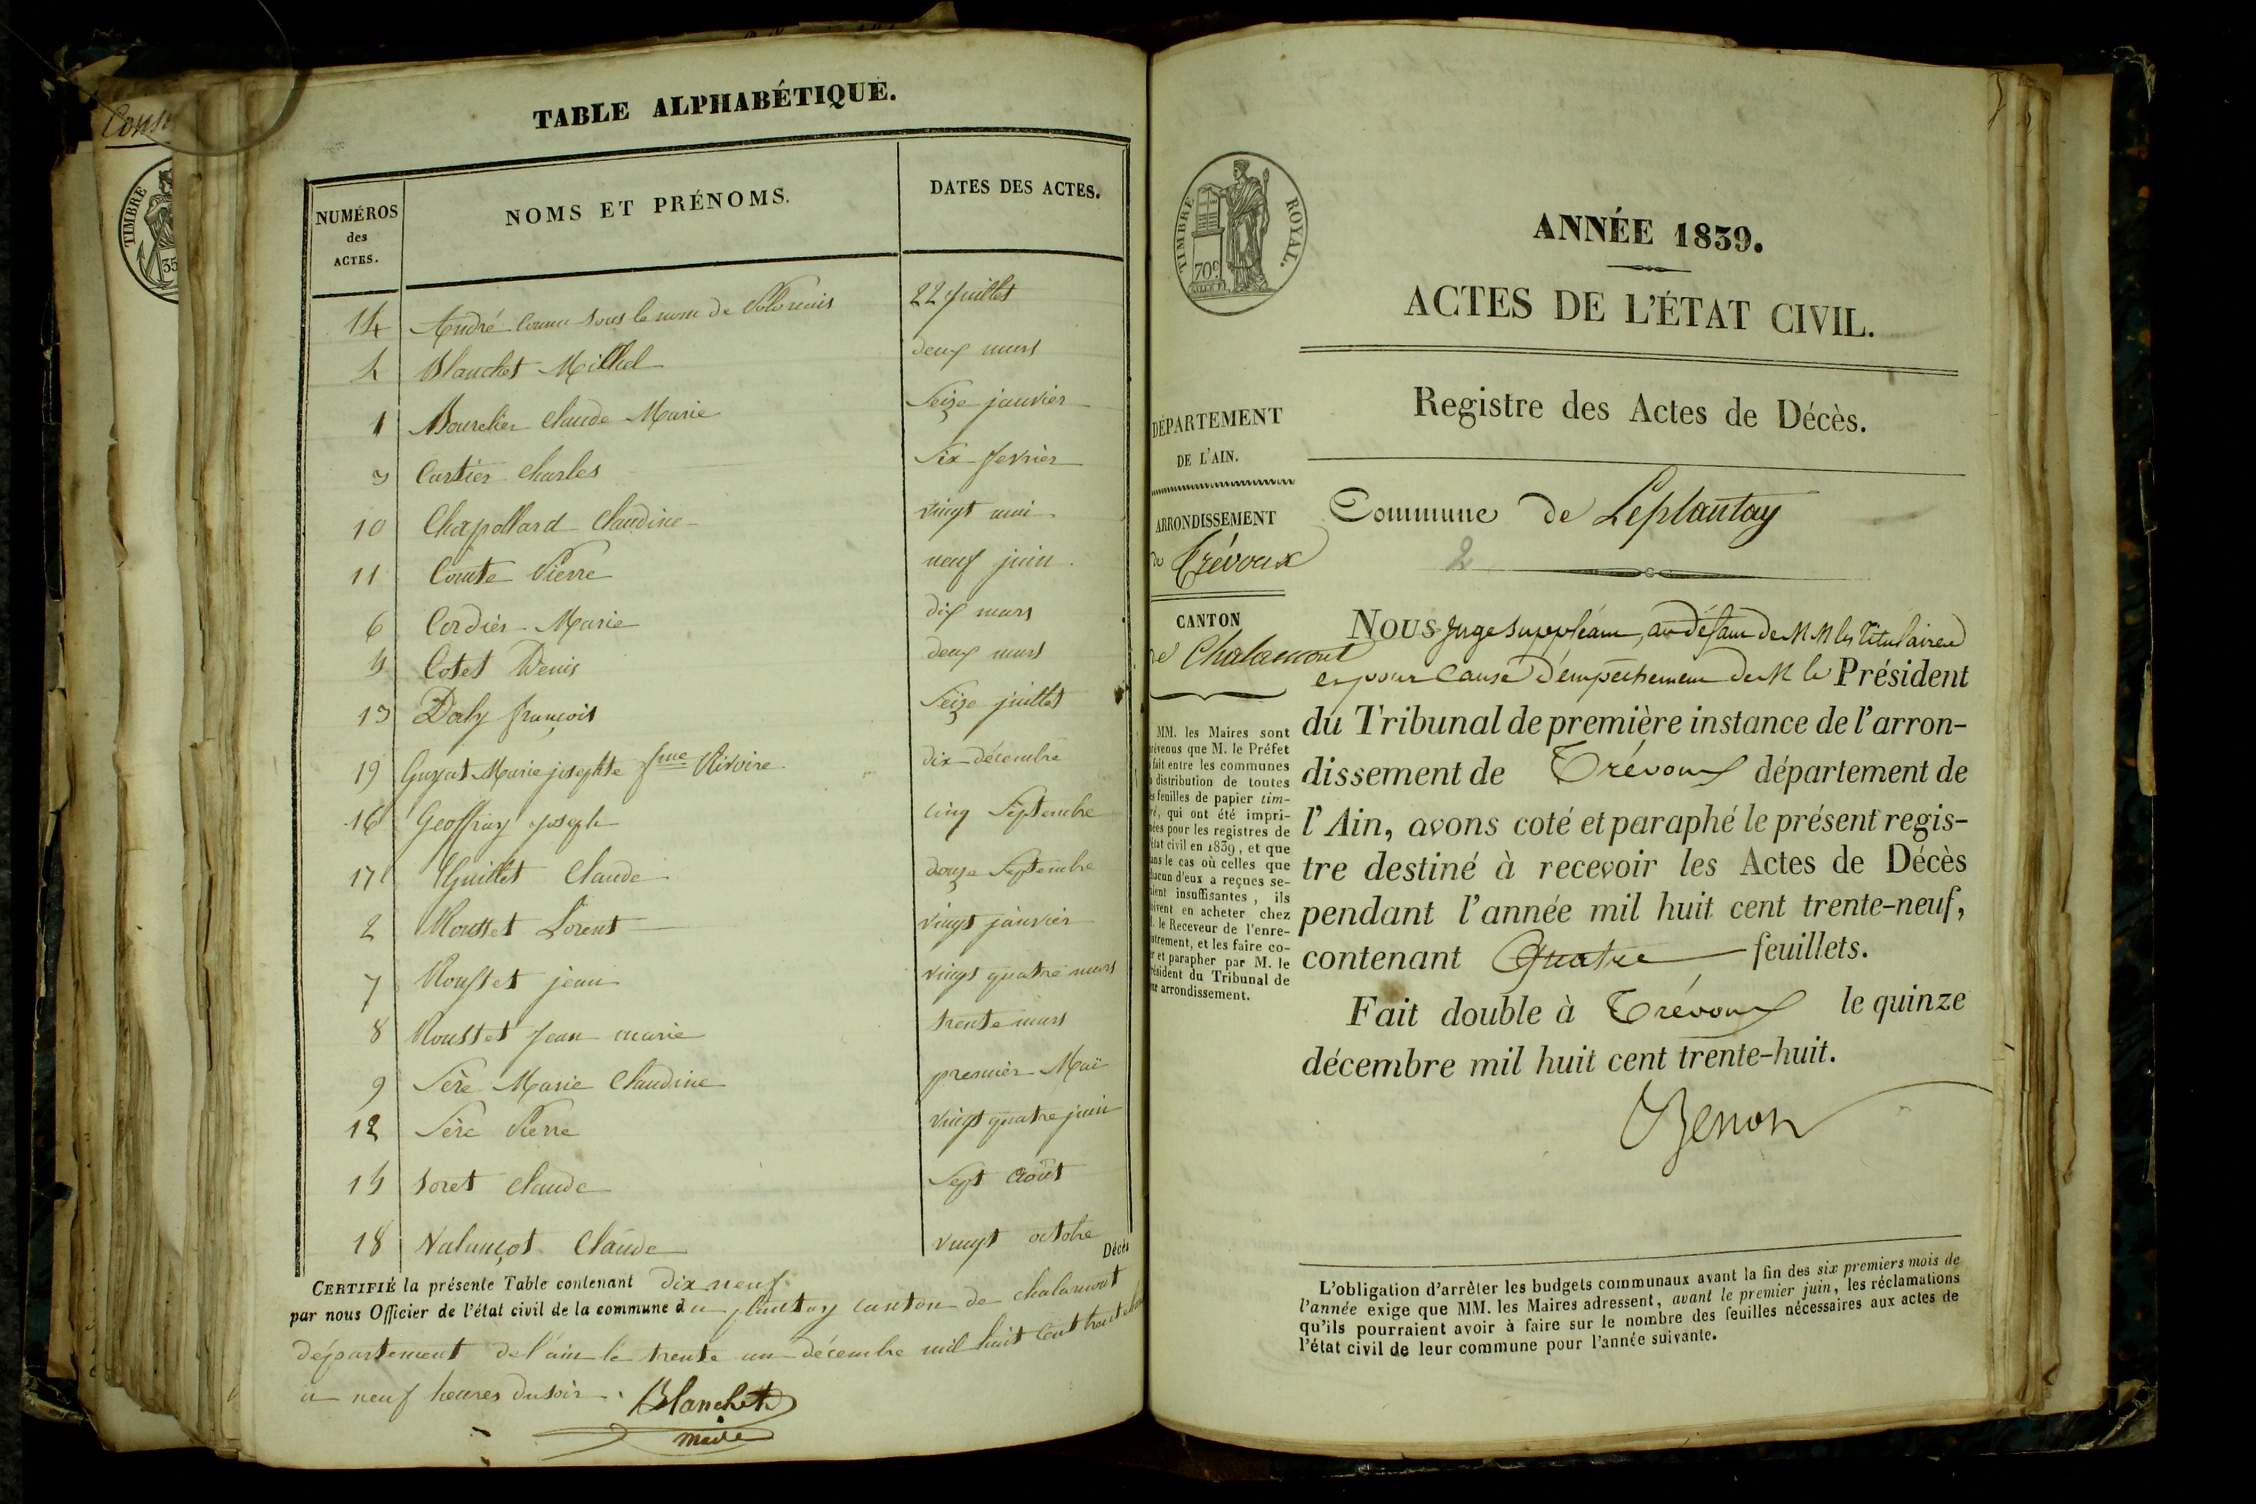 Cons
TIMBRE
35
TABLE ALPHABÉTIQUE.
NUMÉROS des ACTES.
NOMS ET PRÉNOMS.
DATES DES ACTES.
14 André Connu sous le nom de 22 juillet
4 Blanchet Michel deux mars
1 Bourelier Claude Marie Seize janvier
3 Cartier Charles Six fevrier
10 Chapollard Claudine vingt mai
11 Comte Pierre neuf juin
6 Cordier Marie dix mars
5 Cotet Denis deux mars
13 Daly françois Seize juillet
19 Guyat Marie josephte fme Rivoire dix décembre
16 Geoffray joseph cinq Septembre
17 Guillet Claude douze Septembre
2 Rousset Lorent vingt janvier
7 Rousset jean vingt quatre mars
8 Rousset Jean marie trente mars
9 Sère Marie Claudine premier Mai
12 Sère Pierre vingt quatre juin
15 Soret Claude Sept Août
18 Valançot Claude vingt octobre
Décès
CERTIFIÉ la présente Table contenant dix neuf
par nous Officier de l'état civil de la commune du plantay canton de chalamont
département de l'ain le trente un décembre mil huit cent trente
a neuf heures du soir. Blanchet
maire
TIMBRE ROYAL.
70c
ANNÉE 1839.
ACTES DE L'ÉTAT CIVIL.
Registre des Actes de Décès.
DÉPARTEMENT
DE L'AIN.
ARRONDISSEMENT
de Trévoux
CANTON
de Chalamont
MM. les Maires sont
prévenus que M. le Préfet
a fait entre les communes
la distribution de toutes
les feuilles de papier tim-
bré, qui ont été impri-
mées pour les registres de
l'état civil en 1839, et que
dans le cas où celles que
chacun d'eux a reçues se-
raient insuffisantes, ils
doivent en acheter chez
M. le Receveur de l'enre-
gistrement, et les faire co-
ter et parapher par M. le
Président du Tribunal de
leur arrondissement.
Commune de Leplantay
2
NOUS Juge suppléant, au défaut de MM les Titulaires
et pour cause d'empêchement de M le Président
du Tribunal de première instance de l'arron-
dissement de Trévoux département de
l'Ain, avons coté et paraphé le présent regis-
tre destiné à recevoir les Actes de Décès
pendant l'année mil huit cent trente-neuf,
contenant Quatre feuillets.
Fait double à Trévoux le quinze
décembre mil huit cent trente-huit.
L'obligation d'arrêter les budgets communaux avant la fin des six premiers mois de
l'année exige que MM. les Maires adressent, avant le premier juin, les réclamations
qu'ils pourraient avoir à faire sur le nombre des feuilles nécessaires aux actes de
l'état civil de leur commune pour l'année suivante.